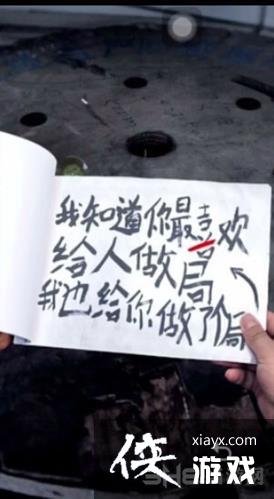 我知道你最喜欢
给人做局
我也给你做了局
xiayx.com
侠游戏